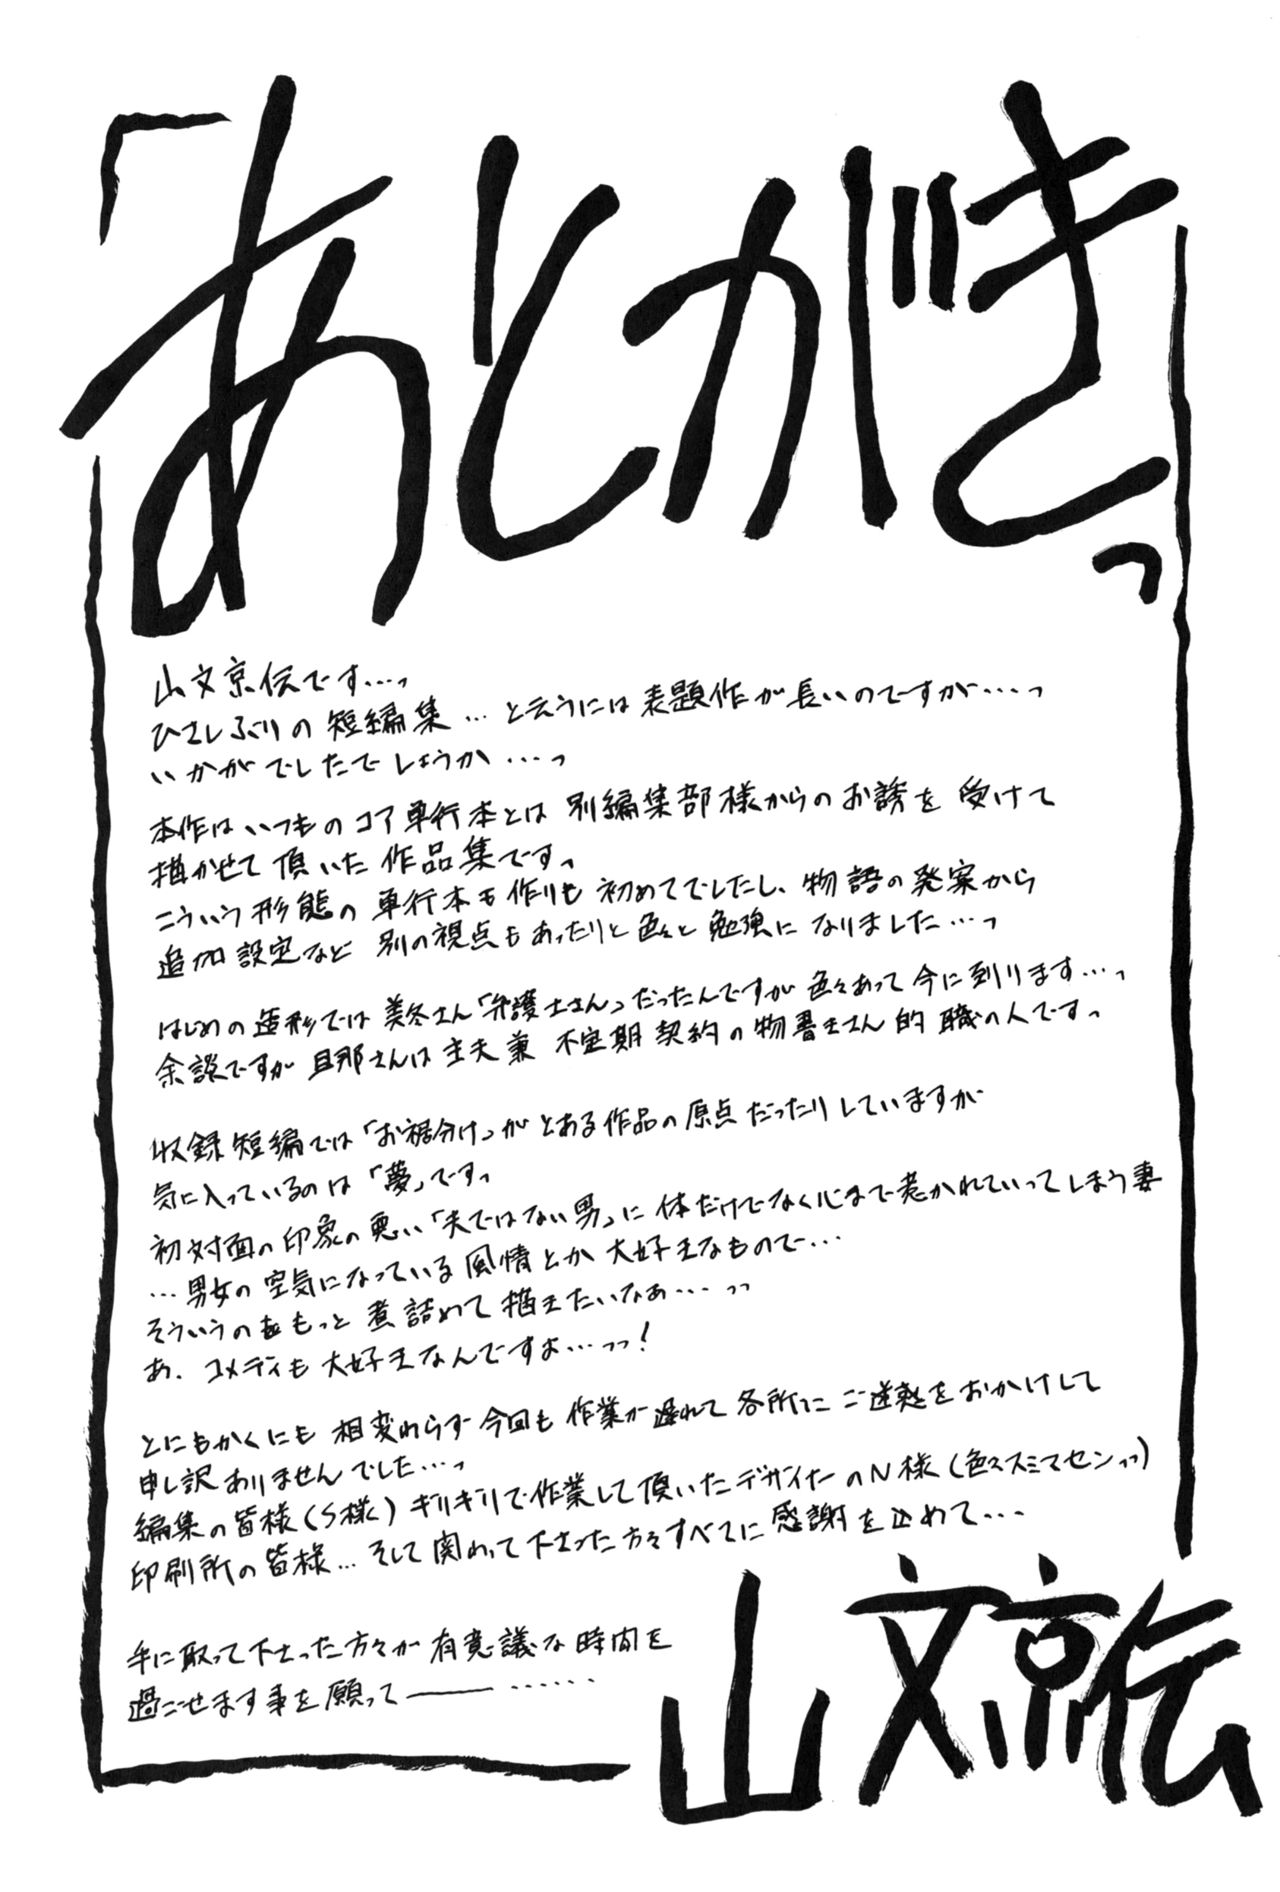 「あとがきっ
山文京伝です…っ
ひさしぶりの短編集…と云うには表題作が長いのですが…っ
いかがでしたでしょうか…っ
本作はいつものコア単行本とは別編集部様からのお誘を受けて
描かせて頂いた作品集ですっ
こういう形態の単行本も作りも初めてでしたし、物語の発案から
追加設定など別の視点もあったりと色々と勉強になりました…っ
はじめの造形では美冬さん「弁護士さん」だったんですが色々あって今に到ります…っ
余談ですが旦那さんは主夫兼不定期契約の物書きさん的職の人ですっ
収録短編では「お裾分け」がとある作品の原点だったりしていますが
気に入っているのは「夢」ですっ
初対面の印象の悪い「夫ではない男」に体だけでなく心まで惹かれていってしまう妻
…男女の空気になっている風情とか大好きなもので…
そういうのをもっと煮詰めて描きたいなぁ…っっ
あ、コメディも大好きなんですよ…っっ!
とにもかくにも相変わらず今回も作業が遅れて各所にご迷惑をおかけして
申し訳ありませんでした…っ
編集の皆様(S様)ギリギリで作業して頂いたデザイナーのN様(色々スミマセンっっ)
印刷所の皆様…そして関わって下さった方々すべてに感謝を込めて…
手に取って下さった方々が有意議な時間を
過ごせます事を願って――……
山文京伝